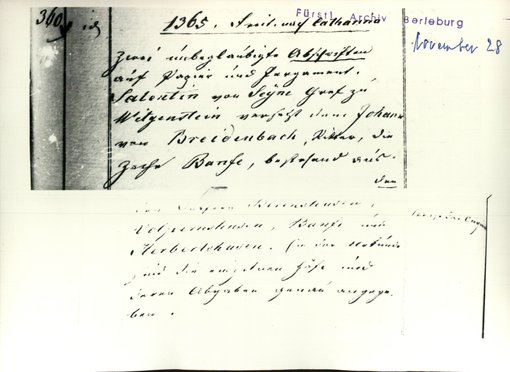 Fürstl. Archiv Berleburg
November 28
360.
1365. Freit. nach Catharine
Zwei unbeglaubigte Abschriften
auf Papier und Pergament.
Salentin von Seyne Graf zu
Witgenstein versetzt dem Johann
von Breidenbach, Ritter, die
Zeche Banfe, bestehend aus
den
Banfe und
Herbertshausen. In der Urkunde
sind die einzelnen Höfe und
deren Abgaben genau angege-
ben.